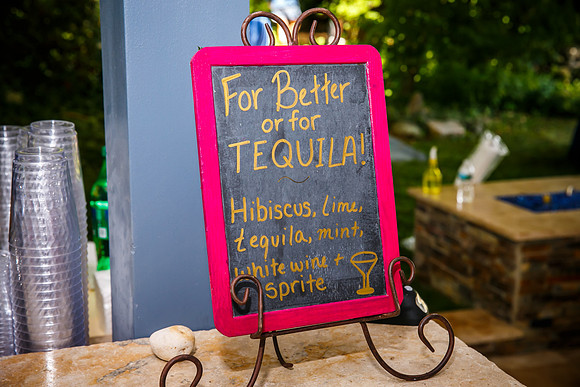 For Better
or for
TEQUILA!
Hibiscus, lime,
tequila, mint,
white wine +
sprite